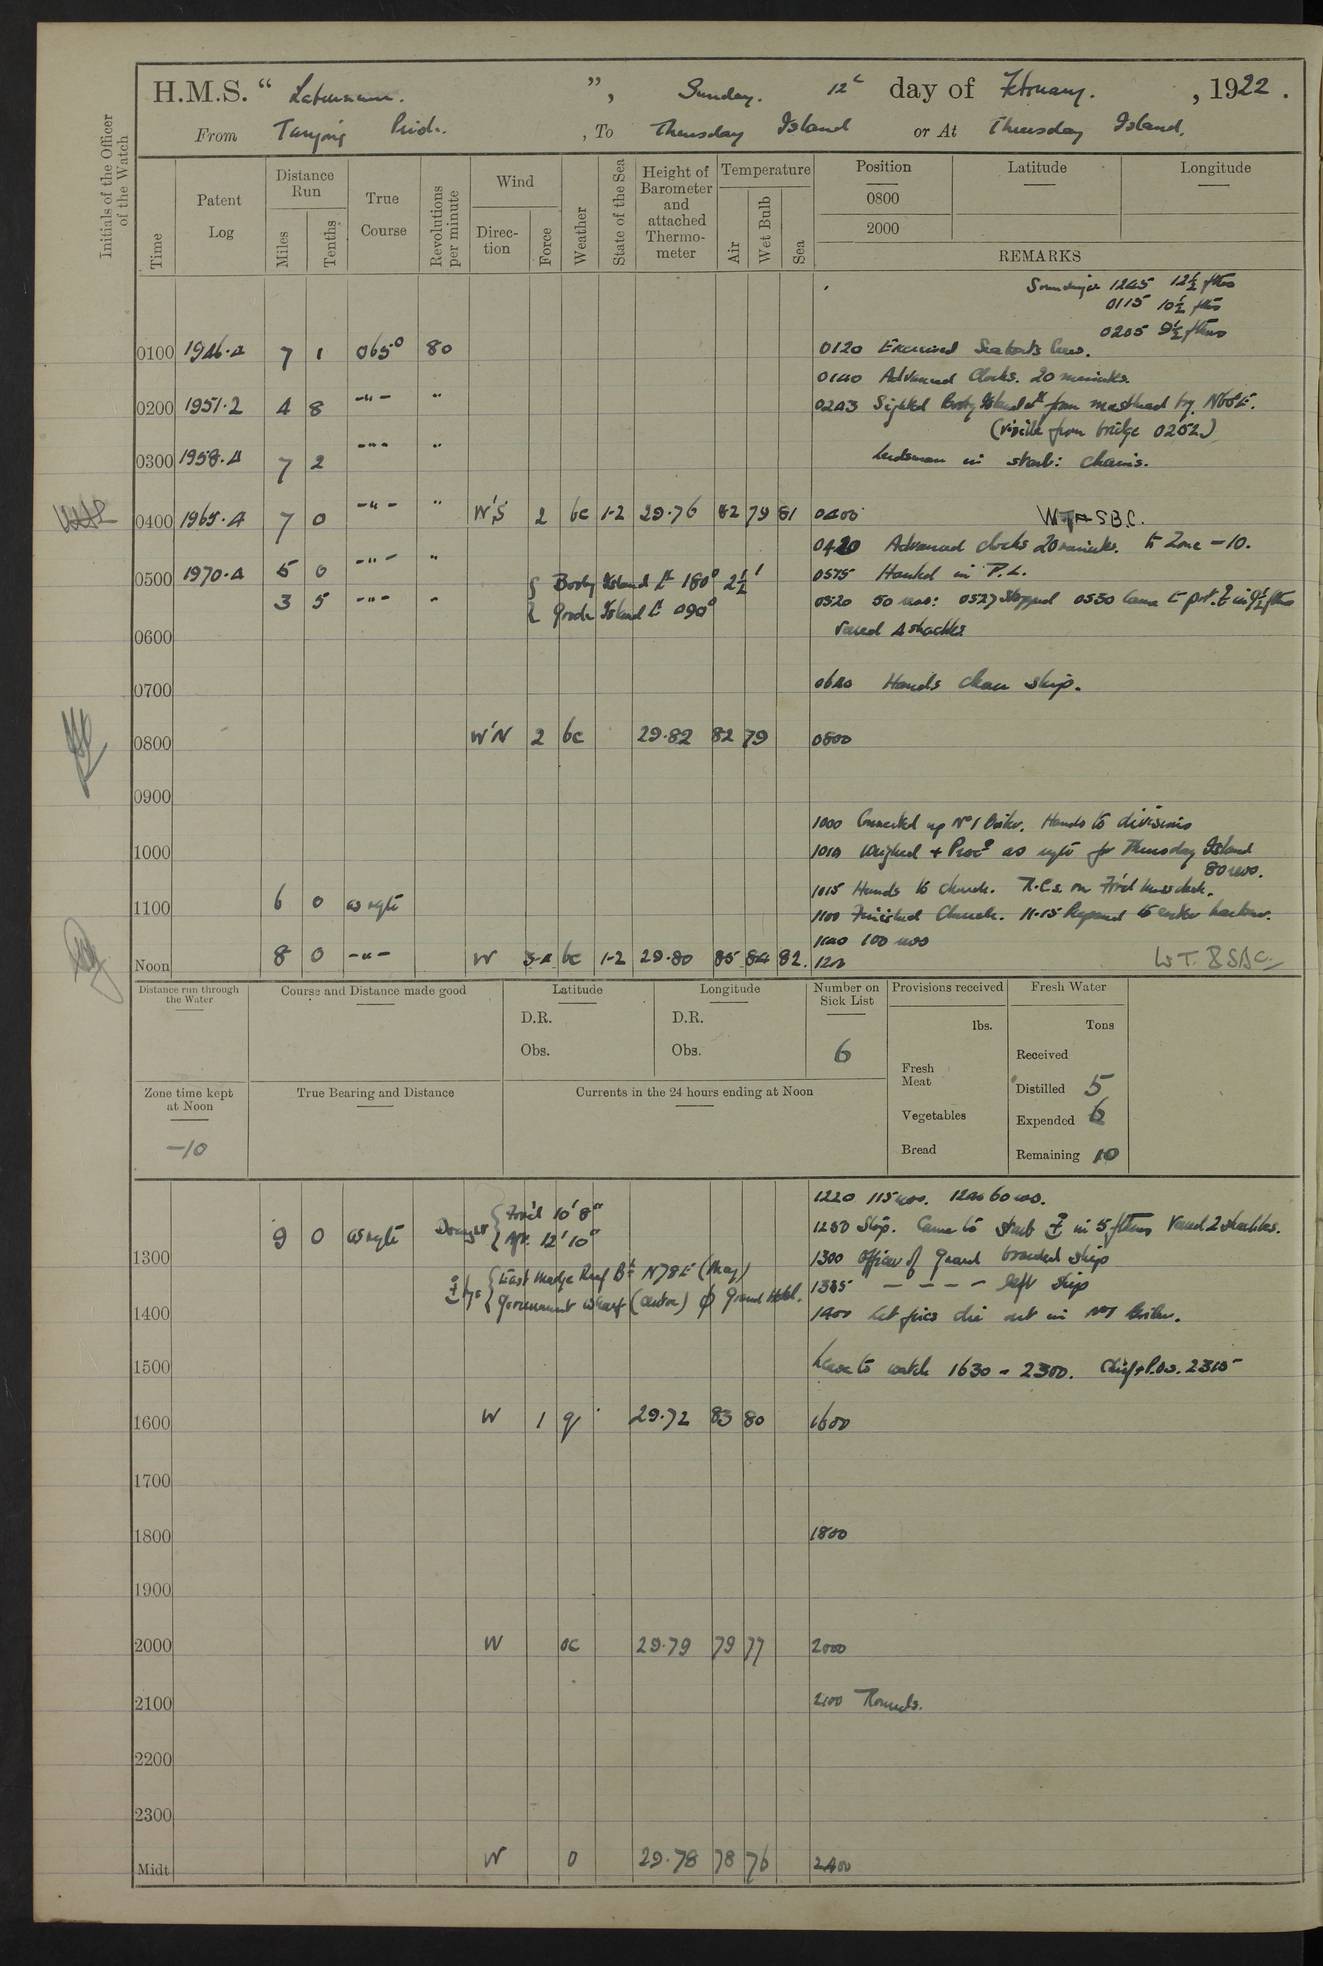 H.M.S. “ Laburnum. ”, Sunday. 12th day of February. , 1922 .
From Tanjong Priok. , To Thursday Island or At Thursday Island.
Initials of the Officer of the Watch
Time Patent Log Distance Run Miles Tenths True Course Revolutions per minute Wind Direction Force Weather State of the Sea Height of Barometer and attached Thermometer Temperature Air Wet Bulb Sea Position 0800 2000 Latitude Longitude
REMARKS
Soundings 1245 12½ fths
0115 10½ fths
0205 9½ fthms
0100 1946.4 7 1 065° 80 0120 Exercised Seaboats Crew.
0140 Advanced Clocks. 20 minutes.
0200 1951.2 4 8 -"- " 0243 Sighted Booby Island Lt from masthead by N60E.
(visible from bridge 0252)
0300 1958.4 7 2 -"- " Leadsman in starb: chains.
0400 1965.4 7 0 -"- " W'S 2 bc 1-2 29.76 82 79 81 0400 W.T.A S.B.C.
0420 Advanced clocks 20 minutes. to Zone -10.
0500 1970.4 5 0 -"- " { Booby Island Lt 180° 2½' 0515 Hauled in P.L.
3 5 -"- " { Goode Island Lt 090° 0520 50 revs: 0527 Stopped 0530 Came to port ⚓ in 9½ fths
0600 Veered 4 shackles
0700 0640 Hands clean ship.
0800 W'N 2 bc 29.82 82 79 0800
0900
1000 Connected up No 1 Boiler. Hands to divisions
1000 1010 Weighed + Procd as reqte for Thursday Island
80 revs.
1015 Hands to church. R.C.s on For'd Mess deck.
1100 6 0 as reqte 1100 Finished Church. 11.15 Prepared to enter harbour.
1140 100 revs
Noon 8 0 -"- W 3-4 bc 1-2 29.80 85 84 82. 1200 W.T. B S.B.C.
Distance run through the Water Course and Distance made good Latitude Longitude Number on Sick List Provisions received Fresh Water
D.R. D.R. lbs. Tons
Obs. Obs. 6 Received
Fresh Meat
Zone time kept at Noon True Bearing and Distance Currents in the 24 hours ending at Noon Distilled 5
Vegetables Expended 6
-10 Bread Remaining 10
1220 115 revs. 1240 60 revs.
9 0 as reqte Draught { For'd 10' 8" Aft. 12' 10" 1250 Stop. Came to starb ⚓ in 5 fthms Veered 2 shackles.
1300 1300 Officer of Guard boarded ship
⚓ brgs { East Madge Reef Bn N78E (Mag) 1315 – – – – left ship
{ Government Wharf (centre) ϕ Grand Hotel.
1400 1400 Let fires die out in No 1 Boiler.
1500 Leave to watch 1630 - 2300. Chief & P.Os. 2315
1600 W 1 q 29.72 83 80 1600
1700
1800 1800
1900
2000 W oc 29.79 79 77 2000
2100 2100 Rounds.
2200
2300
Midt W o 29.78 78 76 2400